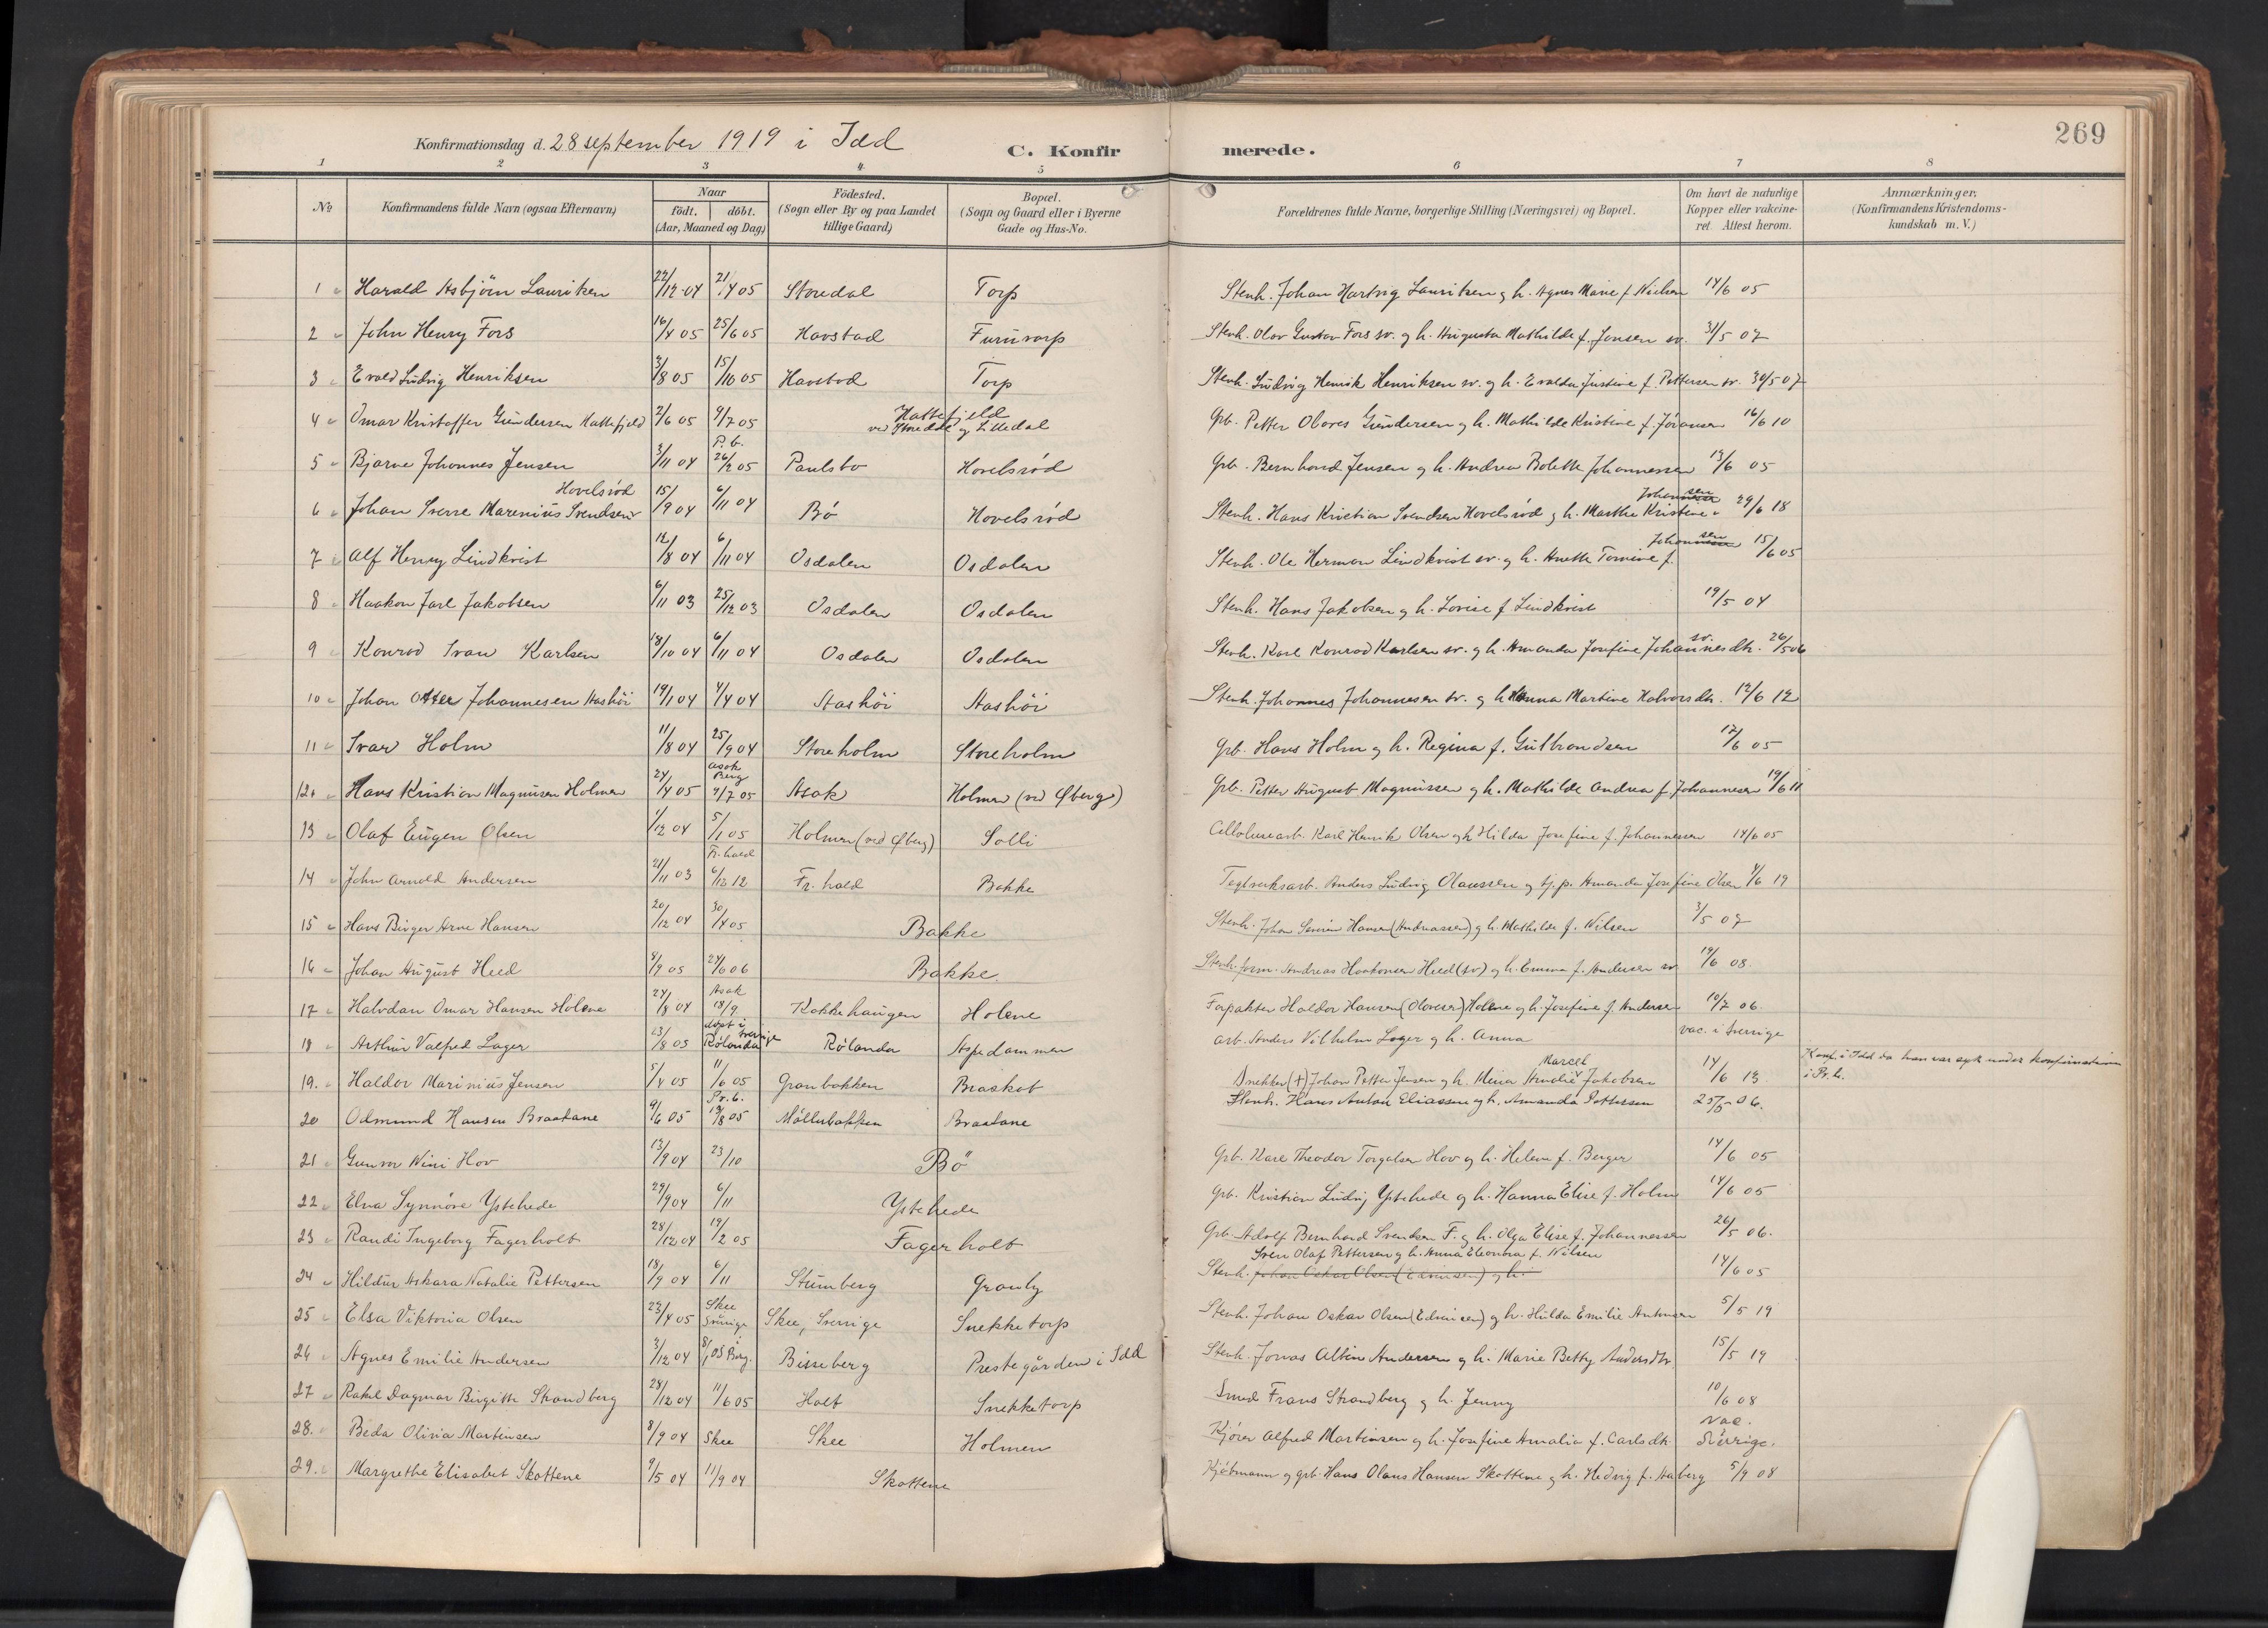 269
Konfirmationsdag d. 28 september 1919 i Idd
C. Konfirmerede.
1 2 3 4 5 6 7 8
No
Konfirmandens fulde Navn (ogsaa Efternavn)
Naar
födt. döbt.
(Aar, Maaned og Dag)
Födested.
(Sogn eller By og paa Landet
tillige Gaard)
Bopæl.
(Sogn og Gaard eller i Byerne
Gade og Hus-No.
Forældrenes fulde Navne, borgerlige Stilling (Næringsvei) og Bopæl.
Om havt de naturlige
Kopper eller vakcine-
ret. Attest herom.
Anmærkninger.
(Konfirmandens Kristendoms-
kundskab m. V.)
1 Harald Asbjörn Lauritsen 22/12 04 21/4 05 Storedal Torp Stenh. Johan Hartvig Lauritsen og h. Agnes Marie f. Nielsen 14/6 05
2 John Henry Fors 16/4 05 25/6 05 Havstad Furutorp Stenh. Olav Gustav Fors sv. og h. Augusta Mathilde f. Jensen sv. 31/5 07
3 Evald Ludvig Henriksen 3/8 05 15/10 05 Havstad Torp Stenh. Ludvig Henrik Henriksen sv. og h. Evalda Justine f. Pettersen sv. 30/5 07
4 Omar Kristoffer Gundersen Hattefjeld 2/6 05 9/7 05 Hattefjeld ved Storedal og Lilledal Grb. Petter Olares Gundersen og h. Mathilde Kristine f. Jöransen 16/6 10
5 Bjarne Johannes Jensen 3/11 04 P.b. 26/2 05 Paulsbo Hovelsröd Grb. Bernhard Jensen og h. Andrea Bolette Johannessen 13/6 05
6 Johan Sverre Marenius Svendsen Hovelsröd 15/9 04 6/11 04 Bö Hovelsröd Stenh. Hans Kristian Svendsen Hovelsröd og h. Marthe Kristine Johansen 29/6 18
7 Alf Henry Lindkvist 12/8 04 6/11 04 Osdalen Osdalen Stenh. Ole Herman Lindkvist sv. og h. Anette Tomine f. Johansen 15/6 05
8 Haakon Jarl Jakobsen 6/11 03 25/12 03 Osdalen Osdalen Stenh. Hans Jakobsen og h. Lovise f. Lindkvist 19/5 04
9 Konrad Ivan Karlsen 18/10 04 6/11 04 Osdalen Osdalen Stenh. Karl Konrad Karlsen sv. og h. Amanda Josefine Johannesdtr. sv. 26/5 06
10 Johan Otter Johannesen Aashöi 19/1 04 4/4 04 Aashöi Aashöi Stenh. Johannes Johannesen sv. og h. Hanna Martine Halvorsdtr. 12/6 12
11 Ivar Holm 11/8 04 25/9 04 Storeholm Storeholm Grb. Hans Holm og h. Regina f. Gulbrandsen 12/6 05
12 Hans Kristian Magnussen Holmen 24/4 05 Asak Berg 9/7 05 Asak Holmen (ved Öberg) Grb. Petter August Magnussen og h. Mathilde Andrea f. Johannesen 19/6 11
13 Olaf Eugen Olsen 1/12 04 5/1 05 Holmen (ved Öberg) Solli Cellulosearb. Karl Henrik Olsen og h. Hilda Josefine f. Johannessen 14/6 05
14 John Arnold Andersen 21/11 03 Fr.hald 6/12 12 Fr.hald Bakke Teglverksarb. Anders Ludvig Olaussen og tj.p. Amanda Josefine Olsen 4/6 19
15 Hans Birger Arne Hansen 20/12 04 30/4 05 Bakke Stenh. Johan Severin Hansen (Andreassen) og h. Mathilde f. Nilsen 3/5 07
16 Johan August Heed 8/9 05 24/6 06 Bakke Stenh.form. Andreas Haakonsen Heed (sv) og h. Emma f. Andersen sv 19/6 08.
17 Halvdan Omar Hansen Holene 24/8 04 Asak 18/9 Kokkehaugen Holene Forpakter Haldor Hansen (Olavesen) Holene og h. Josefine f. Andersen 10/7 06.
18 Arthur Valfred Lager 23/8 05 döpt i Sverrige Rölanda Rölanda Aspedammen arb. Anders Vilhelm Lager og h. Anna vac. i Sverrige
19. Haldor Marinius Jensen 5/4 05 11/6 05 Granbakken Braskot Snekker (+) Johan Petter Jensen og h. Mina Amalie Marcel Jakobsen 14/6 13 Konf. i Idd da han var syk under konfirmationen i Pr.b.
20 Odmund Hansen Braatane 9/6 05 Pr.b. 19/8 05 Möllebakken Braatane Stenh. Hans Anton Eliassen og h. Amanda Pettersen 25/5-06.
21 Gunvor Wini Hov 13/9 04 23/10 Bö Grb. Karl Theodor Torgalsen Hov og h. Helene f. Berger 14/6 05
22 Elna Synnöve Ystehede 29/9 04 6/11 Ystehede Grb. Kristian Ludvig Ystehede og h. Hanna Elise f. Holm 14/6 05
23 Randi Ingeborg Fagerholt 28/12 04 19/2 05 Fagerholt Grb. Adolf Bernhard Svendsen F. og h. Olga Elise f. Johannessen 26/5 06.
24 Hildur Askara Natalie Pettersen 18/9 04 6/11 Stumberg Granly Stenh. Johan Oskar Olsen (Edvinsen) og h. Sven Olaf Pettersen og h. Anna Eleonora f. Nilsen 14/6 05
25 Elsa Viktoria Olsen 23/4 05 Skee Sverrige Skee, Sverrige Snekketorp Stenh. Johan Oskar Olsen (Edvinsen) og h. Hulda Emilie Antonsen 5/5 19
26 Agnes Emilie Andersen 3/12 04 8/1 05 i Berg. Bisseberg Prestegården i Idd Stenh. Jonas Albin Andersen og h. Marie Betty Andersdtr 15/5 19
27 Rakel Dagmar Birgitte Strandberg 28/12 04 11/6 05 Holt Snekketorp Smed Frans Strandberg og h. Jenny 10/6 08
28. Beda Olivia Martinsen 8/9 04 Skee Skee Holmen Kjörer Alfred Martinsen og h. Josefine Amalia f. Carlsdtr. vac. Sverrige.
29. Margrethe Elisabet Skottene 9/5 04 11/9 04 Skottene Kjöbmann og grb. Hans Olaus Hansen Skottene og h. Hedvig f. Aaberg 5/9 08